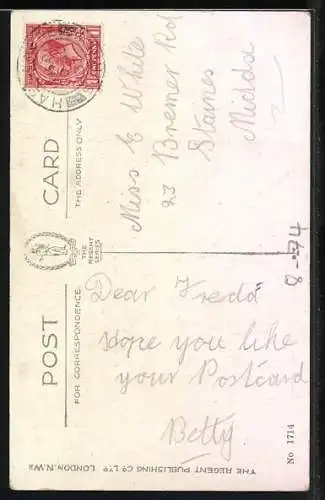 POST CARD
FOR CORRESPONDENCE
THE REGENT SERIES
THE ADDRESS ONLY
Dear Fredd
Hope you like
your Postcard
Betty
Miss E White
23 Bremer Rd
Staines
Middx
8-94
No 1714
THE REGENT PUBLISHING CO LTD LONDON. N.W.1